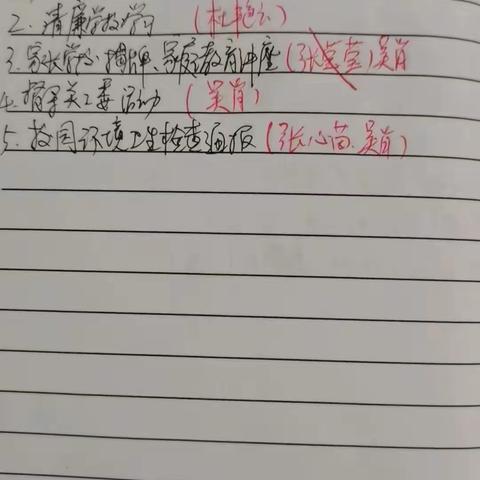 2. 清廉学校学习 (杜艳云)
3. 家长学校:揭牌、家庭教育讲座 (张莹莹) 吴肖
4. 指导关工委活动 (吴肖)
5. 校园环境卫生检查通报 (张心苗、吴肖)